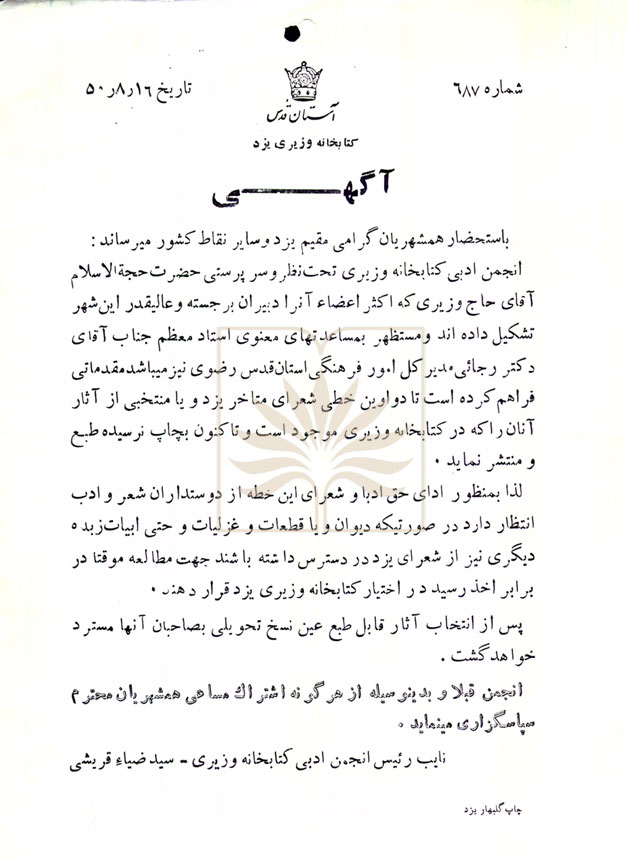 شماره ۶۸۷
تاریخ ۱۶ر۸ر۵۰
آستان قدس
کتابخانه وزیری یزد
آگهی
باستحضار همشهریان گرامی مقیم یزد و سایر نقاط کشور میرساند :
انجمن ادبی کتابخانه وزیری تحت نظر و سر پرستی حضرت حجة الاسلام
آقای حاج وزیری که اکثر اعضاء آنرا دبیران برجسته و عالیقدر این شهر
تشکیل داده اند و مستظهر بمساعدتهای معنوی استاد معظم جناب آقای
دکتر رجائی مدیر کل امور فرهنگی استان قدس رضوی نیز میباشد مقدماتی
فراهم کرده است تا دواوین خطی شعرای متاخر یزد و یا منتخبی از آثار
آنان را که در کتابخانه وزیری موجود است و تاکنون بچاپ نرسیده طبع
و منتشر نماید .
لذا بمنظور ادای حق ادبا و شعرای این خطه از دوستداران شعر و ادب
انتظار دارد در صورتیکه دیوان و یا قطعات و غزلیات و حتی ابیات زبده
دیگری نیز از شعرای یزد در دسترس داشته باشند جهت مطالعه موقتا در
برابر اخذ رسید در اختیار کتابخانه وزیری یزد قرار دهند .
پس از انتخاب آثار قابل طبع عین نسخ تحویلی بصاحبان آنها مسترد
خواهد گشت .
انجمن قبلا و بدینوسیله از هرگونه اشتراك مساعی همشهریان محترم
سپاسگزاری مینماید .
نایب رئیس انجمن ادبی کتابخانه وزیری - سید ضیاء قریشی
چاپ گلبهار یزد